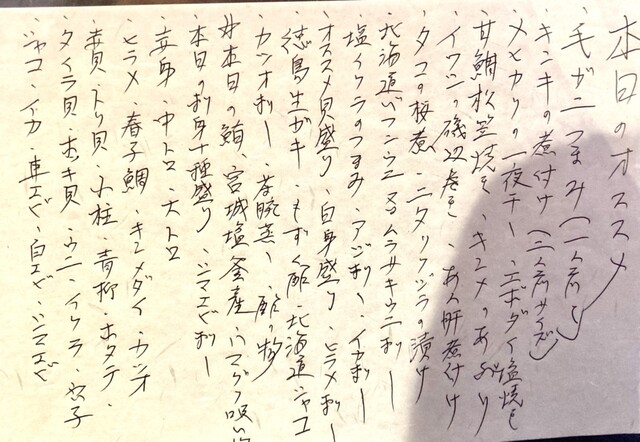 本日のオススメ
・毛ガニつまみ(一人前)
・キンキの煮付け(二人前サイズ)
・メヒカリの一夜干し・エボダイ塩焼き
・甘鯛松笠焼き、キンメのあぶり
・イワシの磯辺巻き、あん肝煮付け
・タコの桜煮、ニタリクジラの漬け
・北海道バフンウニ ムラサキウニ刺し
・塩イクラのつまみ・アジ刺し・イカ刺し
・オススメ貝盛り・白身盛り・ヒラメ刺し
・徳島生ガキ・もずく酢・北海道シャコ
・カツオ刺し・茶碗蒸し・酢の物
#本日の鮪、宮城塩釜産・ハマグリ吸い
・本日の刺身十種盛り・シマエビ刺し
・赤身・中トロ・大トロ
・ヒラメ・春子鯛・キンメダイ・カツオ
・青貝・トリ貝・小柱・青柳・ホタテ・
・タイラ貝・ホッキ貝・ウニ・イクラ・穴子
・シャコ・イカ・車エビ・白エビ・シマエビ